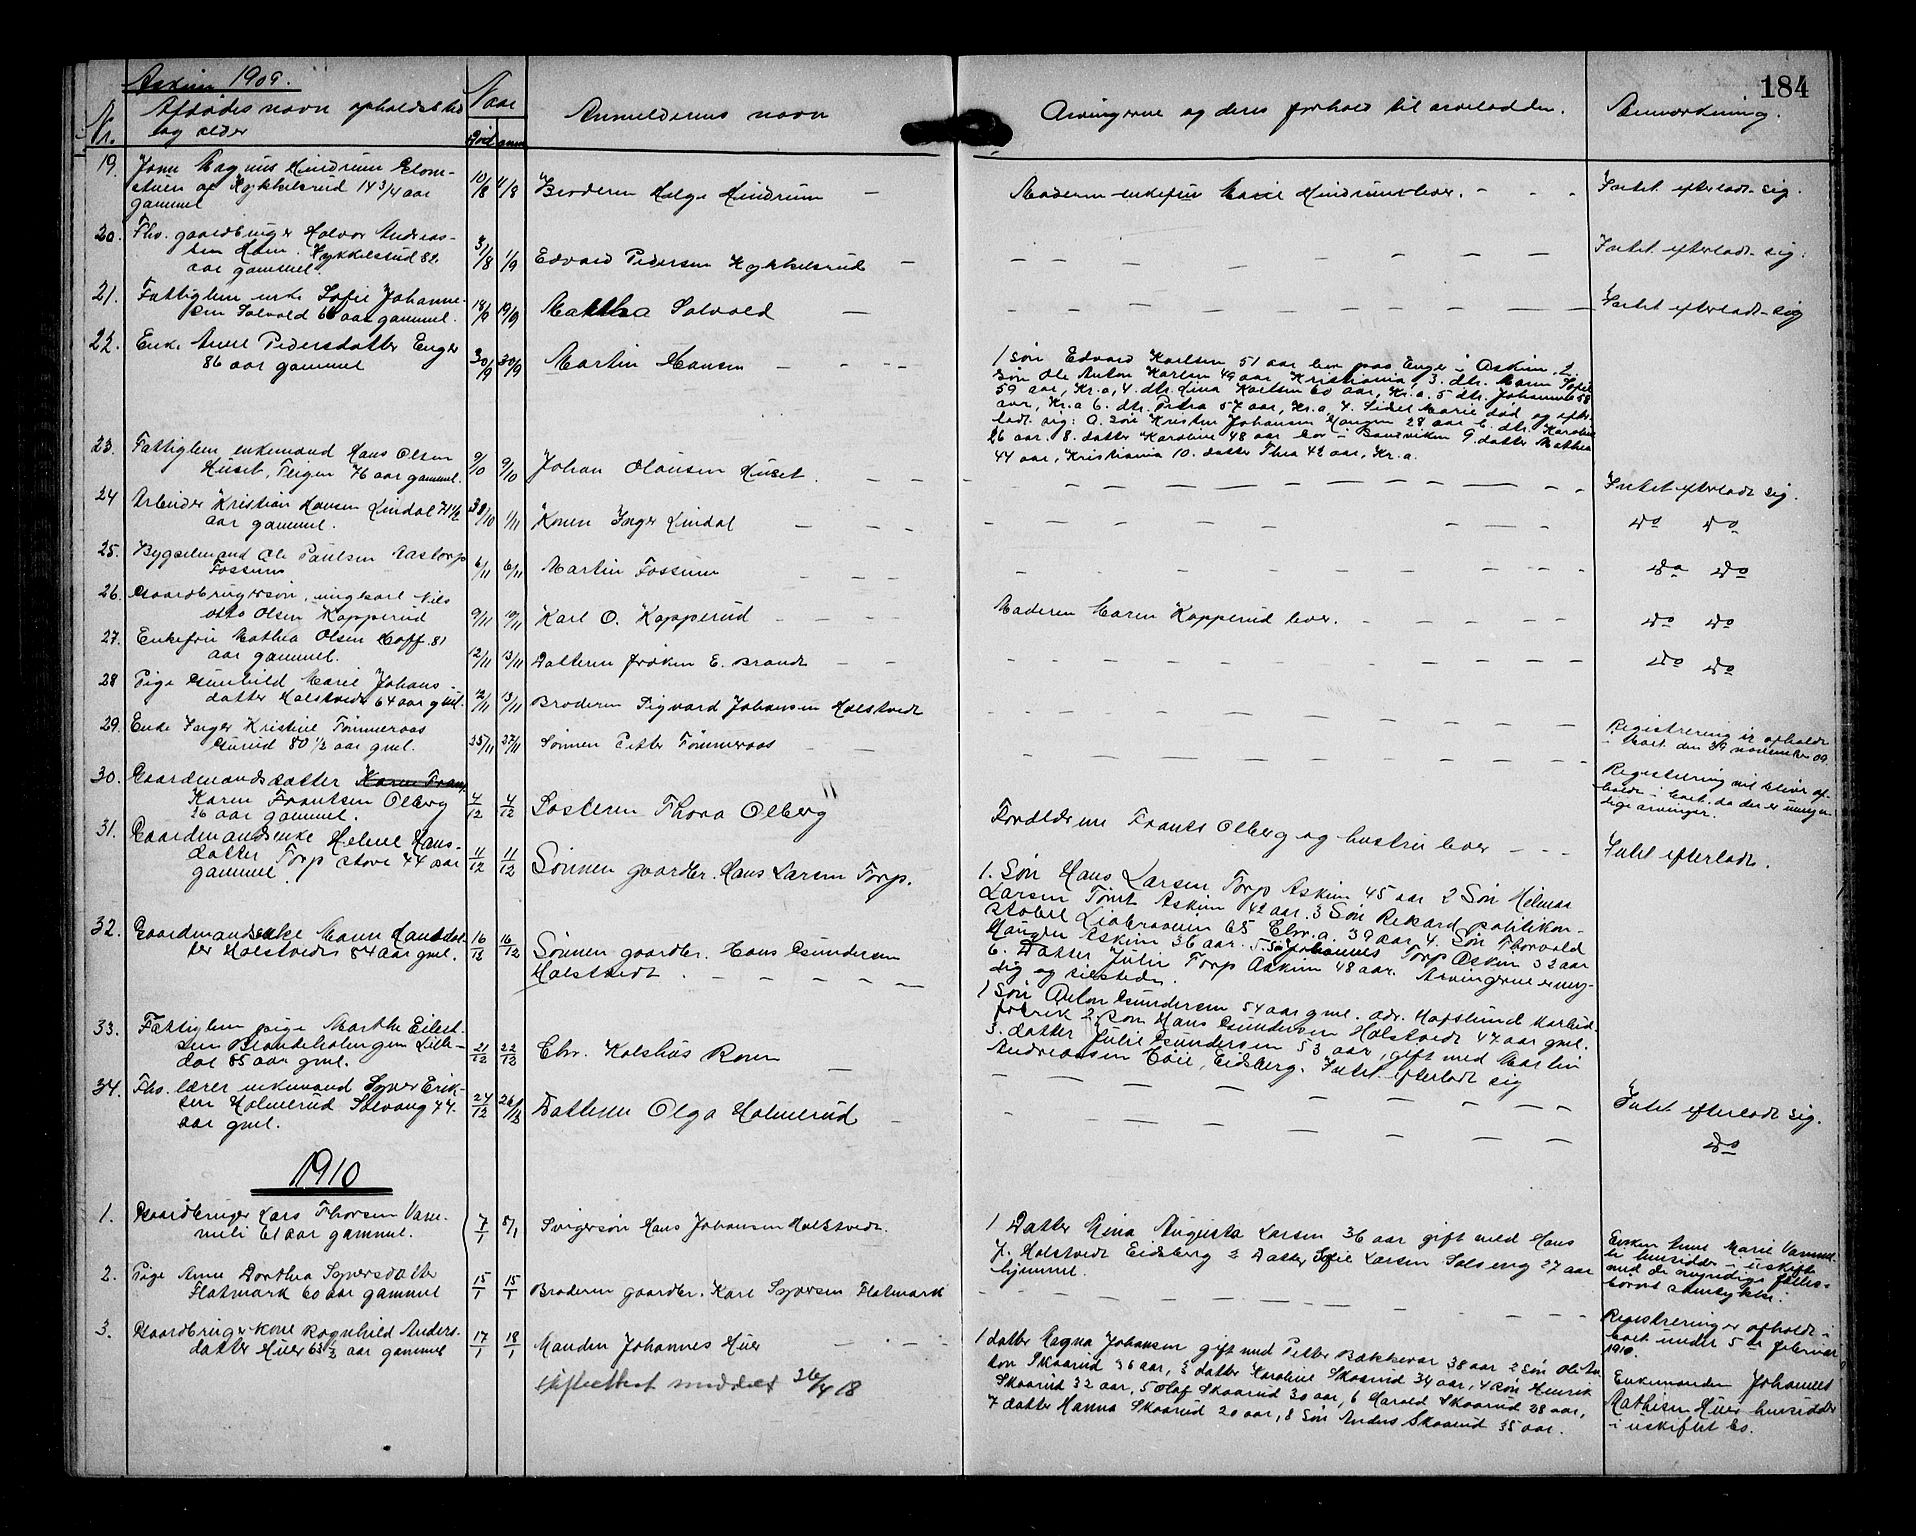 184
Askim 1909.
Nr. Afdødes navn opholdssted Naar Anmelderens navn Arvingerne og deres forhold til arveladden. Anmærkning.
og alder død anm
19. John Magnus Mindrum Glom-
stuen af Kykkelsrud 14 3/4 aar 10/8 11/8 Broderen Helge Mindrum — Moderen enkefru Marie Mindrum lever. - - - Intet efterladt sig.
gammel
20. Fhv. gaardbruger Halvor Andreas-
sen Moen. Kykkelsrud 82 31/8 1/9 Edvard Pedersen Kykkelsrud — Intet efterladt sig.
aar gammel.
21. Fattiglem enke Sofie Johanne-
sen Solvold 68 aar gammel. 18/9 19/9 Martha Solvold — Intet efterladt sig
22. Enke Anne Pedersdatter Enger
86 aar gammel 30/9 30/9 Martin Hansen - - -
1 søn Edvard Karlsen 51 aar bor paa Enger i Askim, 2.
søn Ole Anton Karlsen 49 aar Kristiania, 3. dtr. Maren Sofie
59 aar, Kr.a, 4. dtr. Lina Karlsen 60 aar, Kr.a. 5 dtr. Johanne 58
aar, Kr.a 6. dtr. Petra 57 aar, Kr.a, 7. Sidsel Marie død og efter-
ladt sig: a. søn Kristen Johansen Haugen 28 aar b. dtr. Karoline
26 aar. 8. datter Karoline 48 aar bor i 9. datter Mathea
44 aar, Kristiania 10. datter Thea 42 aar, Kr.a.
23. Fattiglem enkemand Hans Olsen
Huseb, Teigen 76 aar gammel. 9/10 9/10 Johan Olausen Huset. - - - Intet efterladt sig.
24 Arbeider Kristian Hansen Lindal 71 1/2
aar gammel. 30/10 1/11 Konen Inger Lindal — Do Do
25. Bygselmand Ole Paulsen Aastorp
Fossum 6/11 6/11 Martin Fossum — Do Do
26. Gaardbrugersøn, ungkarl Nils
Otto Olsen Kopperud 9/11 10/11 Karl O. Kopperud — Moderen Maren Kopperud lever. - - Do Do
27. Enkefru Mathea Olsen Hoff 81
aar gammel. 12/11 13/11 Datteren frøken E. Brandt — Do Do
28 Pige Gunhild Marie Johans-
datter Holstvedt 64 aar gml. 12/11 13/11 Broderen Sigvard Johansen Holstvedt
29. Enke Inger Kristine Tømmeraas
Gurud 80 1/2 aar gml. 25/11 27/11 Sønnen Petter Tømmeraas - -
Registrering er afholdt
i boet den 29 november 09.
30. Gaardmandsdatter Karen Fran
Karen Frantsen Olberg 4/12 4/12 Søsteren Thora Olberg
26 aar gammel.
Forældrene Frants Olberg og hustru lever - - -
Registrering vil blive af-
holdt i boet, da der er umyn-
dige arvinger.
31. Gaardmandsenke Helene Hans-
datter Torp store 74 aar 11/12 11/12 Sønnen gaardbr. Hans Larsen Torp.
gammel.
Intet efterladt.
1. Søn Hans Larsen Torp Askim 45 aar 2 Søn Helmer
Larsen Tømt Askim 42 aar. 3 Søn Rekard politikon-
stabel Liabroveien 65 Chr.a. 39 aar 4. Søn Thorvald
Haugen Askim 36 aar. 5 Søn Johannes Torp Askim 32 aar
6. Datter Julie Torp Askim 48 aar. Arvingerne er myn-
dig og tilstede.
32. Gaardmandsenke Maren Hansdat-
ter Holstvedt 84 aar gml. 16/12 16/12 Sønnen gaardbr. Hans Gundersen
Holstvedt. - - - -
1 Søn Anton Gundersen 54 aar gml. adr. Hafslund Karbid-
fabrik 2 søn Hans Gundersen Holstvedt 47 aar gml.
3. datter Julie Gundersen 53 aar, gift med Martin
Andreassen Eidsberg. Intet efterladt sig
33. Fattiglem pige Marthe Eilert-
sen Brandeholengen Lille-
dal 85 aar gml. 21/12 22/12 Chr. Kolshus Roen — Intet efterladt sig.
34. Fhv. lærer enkemand Syver Erik-
sen Holmerud Solvang 77. 24/12 26/12 Datteren Olga Holmerud — Do
aar gml.
1910
1. Gaardbruger Lars Thorsen Vam-
meli 61 aar gammel. 7/1 8/1 Svigersøn Hans Johansen Holstvedt.
1 Datter Mina Augusta Larsen 36 aar gift med Hans
J. Holstvedt Eidsberg 2 Datter Sofie Larsen Solseng 27 aar
hjemmel.
Enken Anne Marie Vammel-
li hensidder i uskifte
med de myndige fælles-
børns samtykke.
2. Pige Anne Dorthea Syversdatter
Flatmark 60 aar gammel 15/1 15/1 Broderen gaardbr. Karl Syversen Flatmark
Registrering er afholdt i
boet under 5te februar
1910.
3. Gaardbrugerkone Ragnhild Anders-
datter Huer 63 1/2 aar gammel 17/1 18/1 Manden Johannes Huer - - -
Skifteattest meddelt 26/4 18
1 datter Magna Johansen gift med Petter Bakkevar 38 aar 2 søn Ole An-
ton Skaarud 36 aar, 3 datter Karoline Skaarud 34 aar, 4 søn Henrik
Skaarud 32 aar, 5 Olaf Skaarud 30 aar, 6 Harald Skaarud 28 aar,
7 datter Hanna Skaarud 20 aar, 8 Søn Anders Skaarud 25 aar.
Enkemanden Johannes
Mathisen Huer hensidder
i uskiftet bo.